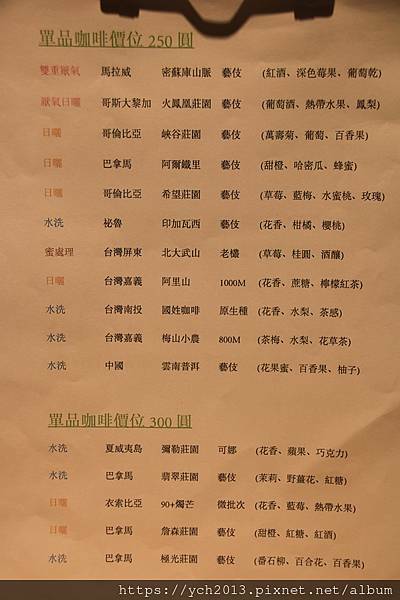 單品咖啡價位 250 圓
雙重厭氧 馬拉威 密蘇庫山脈 藝伎 (紅酒、深色莓果、葡萄乾)
厭氧日曬 哥斯大黎加 火鳳凰莊園 藝伎 (葡萄酒、熱帶水果、鳳梨)
日曬 哥倫比亞 峽谷莊園 藝伎 (萬壽菊、葡萄、百香果)
日曬 巴拿馬 阿爾鐵里 藝伎 (甜橙、哈密瓜、蜂蜜)
日曬 哥倫比亞 希望莊園 藝伎 (草莓、藍梅、水蜜桃、玫瑰)
水洗 祕魯 印加瓦西 藝伎 (花香、柑橘、櫻桃)
蜜處理 台灣屏東 北大武山 老欉 (草莓、桂圓、酒釀)
日曬 台灣嘉義 阿里山 1000M (花香、蔗糖、檸檬紅茶)
水洗 台灣南投 國姓咖啡 原生種 (花香、水梨、茶感)
水洗 台灣嘉義 梅山小農 800M (茶梅、水梨、花草茶)
水洗 中國 雲南普洱 藝伎 (花果蜜、百香果、柚子)
單品咖啡價位 300 圓
水洗 夏威夷島 彌勒莊園 可娜 (花香、蘋果、巧克力)
水洗 巴拿馬 翡翠莊園 藝伎 (茉莉、野薑花、紅糖)
日曬 衣索比亞 90+燭芒 微批次 (花香、藍莓、熱帶水果)
日曬 巴拿馬 詹森莊園 藝伎 (甜橙、紅糖、紅酒)
水洗 巴拿馬 極光莊園 藝伎 (番石柳、百合花、百香果)
https://ych2013.pixnet.net/album